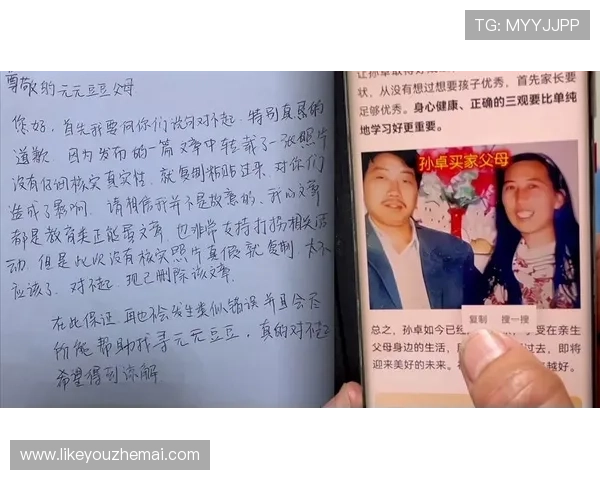 TG: MYYJJPP
尊敬的元元豆豆父母
您好,首先我要向你们说句对不起,特别真恳的
道歉 因为发布的一篇文章中转载了一张照片
没有仔细核实真实性,就复制粘贴过来,对你们
造成了影响,请相信我并不是故意的,我的文章
都是教育类正能量文章 也非常支持打拐相关活
动,但是此次没有核实照片真假就复制,太不
应该了,对不起,现已删除该文章.
在此保证,再也不会发生类似错误并且会尽
所能帮助找寻元元豆豆,真的对不起
希望得到谅解
让孙卓取得好成
状,从没有想过想要孩子优秀,首先家长要
足够优秀。身心健康、正确的三观要比单纯
地学习好更重要。
孙卓买家父母
复制 搜一搜
总之,孙卓如今已经 享受在亲生
父母身边的生活, 过去,即将
迎来美好的未来。 越好。
www.likeyouzhemai.com